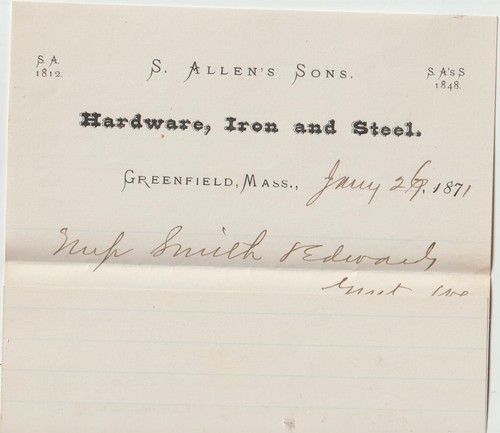 S. A. S. Allen's Sons. S. A's S
1812. 1848.
Hardware, Iron and Steel.
Greenfield, Mass., Jany 1871
Smith & Edwards
Gent